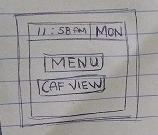 11:58AM MON
MENU
CAF VIEW